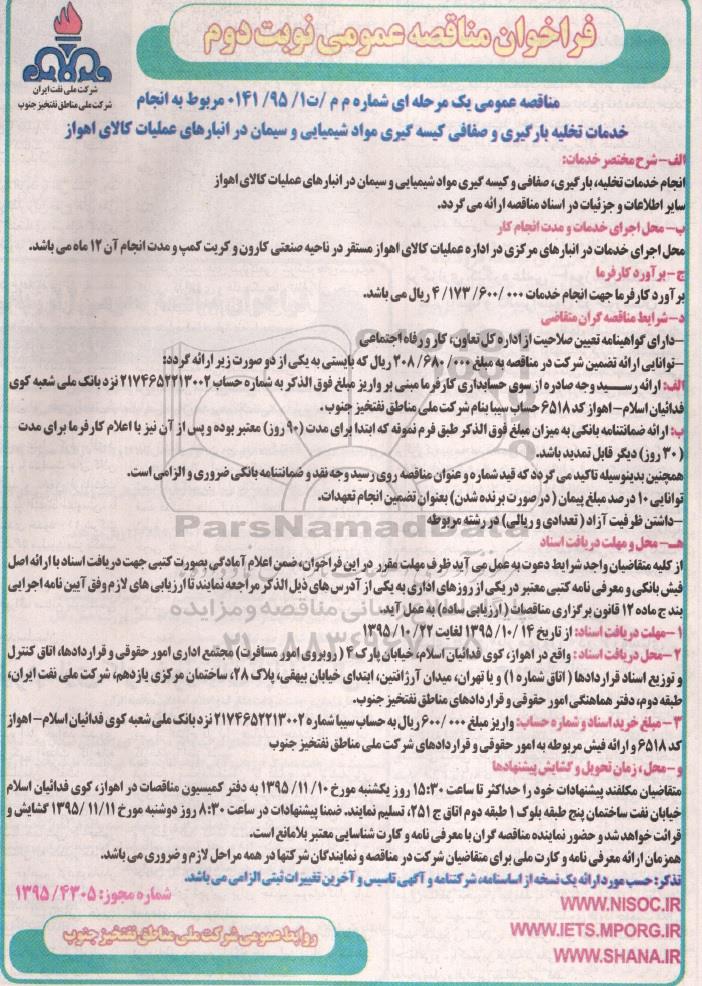 فراخوان مناقصه عمومی نوبت دوم
شرکت ملی نفت ایران
شرکت ملی مناطق نفتخیز جنوب
مناقصه عمومی یک مرحله ای شماره م م /ت۱/ ۹۵/ ۰۱۴۱ مربوط به انجام
خدمات تخلیه بارگیری و صفافی کیسه گیری مواد شیمیایی و سیمان در انبارهای عملیات کالای اهواز
الف- شرح مختصر خدمات:
انجام خدمات تخلیه، بارگیری، صفافی و کیسه گیری مواد شیمیایی و سیمان در انبارهای عملیات کالای اهواز
سایر اطلاعات و جزئیات در اسناد مناقصه ارائه می گردد.
ب- محل اجرای خدمات و مدت انجام کار
محل اجرای خدمات در انبارهای مرکزی در اداره عملیات کالای اهواز مستقر در ناحیه صنعتی کارون و کریت کمپ و مدت انجام آن ۱۲ ماه می باشد.
ج- برآورد کارفرما
برآورد کارفرما جهت انجام خدمات ۰۰۰ /۶۰۰/ ۱۷۳/ ۴ ریال می باشد.
د- شرایط مناقصه گران متقاضی
-دارای گواهینامه تعیین صلاحیت از اداره کل تعاون، کار و رفاه اجتماعی
-توانایی ارائه تضمین شرکت در مناقصه به مبلغ ۰۰۰/ ۶۸۰/ ۲۰۸ ریال که بایستی به یکی از دو صورت زیر ارائه گردد:
الف: ارائه رسید وجه صادره از سوی حسابداری کارفرما مبنی بر واریز مبلغ فوق الذکر به شماره حساب ۲۱۷۴۶۵۲۲۱۳۰۰۲ نزد بانک ملی شعبه کوی
فدائیان اسلام- اهواز کد ۶۵۱۸ حساب سیبا بنام شرکت ملی مناطق نفتخیز جنوب .
ب: ارائه ضمانتنامه بانکی به میزان مبلغ فوق الذکر طبق فرم نمونه که ابتدا برای مدت (۹۰ روز) معتبر بوده و پس از آن نیز با اعلام کارفرما برای مدت
(۳۰ روز) دیگر قابل تمدید باشد.
همچنین بدینوسیله تاکید می گردد که قید شماره و عنوان مناقصه روی رسید وجه نقد و ضمانتنامه بانکی ضروری و الزامی است.
توانایی ۱۰ درصد مبلغ پیمان ( در صورت برنده شدن) بعنوان تضمین انجام تعهدات.
-داشتن ظرفیت آزاد ( تعدادی و ریالی) در رشته مربوطه
هـ- محل و مهلت دریافت اسناد
از کلیه متقاضیان واجد شرایط دعوت به عمل می آید ظرف مهلت مقرر در این فراخوان، ضمن اعلام آمادگی بصورت کتبی جهت دریافت اسناد با ارائه اصل
فیش بانکی و معرفی نامه کتبی معتبر در یکی از روزهای اداری به یکی از آدرس های ذیل الذکر مراجعه نمایند تا ارزیابی های لازم وفق آیین نامه اجرایی
بند ج ماده ۱۲ قانون برگزاری مناقصات ( ارزیابی ساده) به عمل آید.
۱- مهلت دریافت اسناد: از تاریخ ۱۴ /۱۰ /۱۳۹۵ لغایت ۲۲/ ۱۰/ ۱۳۹۵
۲- محل دریافت اسناد : واقع در اهواز، کوی فدائیان اسلام، خیابان پارک ۴ ( روبروی امور مسافرت) مجتمع اداری امور حقوقی و قراردادها، اتاق کنترل
و توزیع اسناد قراردادها ( اتاق شماره ۱) و یا تهران، میدان آرژانتین، ابتدای خیابان بیهقی، پلاک ۲۸، ساختمان مرکزی یازدهم، شرکت ملی نفت ایران،
طبقه دوم، دفتر هماهنگی امور حقوقی و قراردادهای مناطق نفتخیز جنوب.
۳- مبلغ خرید اسناد و شماره حساب: واریز مبلغ ۰۰۰ /۶۰۰ ریال به حساب سیبا شماره ۲۱۷۴۶۵۲۲۱۳۰۰۲ نزد بانک ملی شعبه کوی فدائیان اسلام- اهواز
کد ۶۵۱۸ و ارائه فیش مربوطه به امور حقوقی و قراردادهای شرکت ملی مناطق نفتخیز جنوب
و- محل، زمان تحویل و گشایش پیشنهادها
متقاضیان مکلفند پیشنهادات خود را حداکثر تا ساعت ۱۵:۳۰ روز یکشنبه مورخ ۱۰/ ۱۱/ ۱۳۹۵ به دفتر کمیسیون مناقصات در اهواز، کوی فدائیان اسلام
خیابان نفت ساختمان پنج طبقه بلوک ۱ طبقه دوم اتاق ج ۲۵۱، تسلیم نمایند. ضمنا پیشنهادات در ساعت ۸:۳۰ روز دوشنبه مورخ ۱۱/۱۱ /۱۳۹۵ گشایش و
قرائت خواهد شد و حضور نماینده مناقصه گران با معرفی نامه و کارت شناسایی معتبر بلامانع است.
همزمان ارائه معرفی نامه و کارت ملی برای متقاضیان شرکت در مناقصه و نمایندگان شرکتها در همه مراحل لازم و ضروری می باشد.
تذکر: حسب مورد ارائه یک نسخه از اساسنامه، شرکتنامه و آگهی تاسیس و آخرین تغییرات ثبتی الزامی می باشد.
شماره مجوز: ۴۳۰۵/ ۱۳۹۵
WWW.NISOC.IR
WWW.IETS.MPORG.IR
WWW.SHANA.IR
روابط عمومی شرکت ملی مناطق نفتخیز جنوب
ParsNamadData